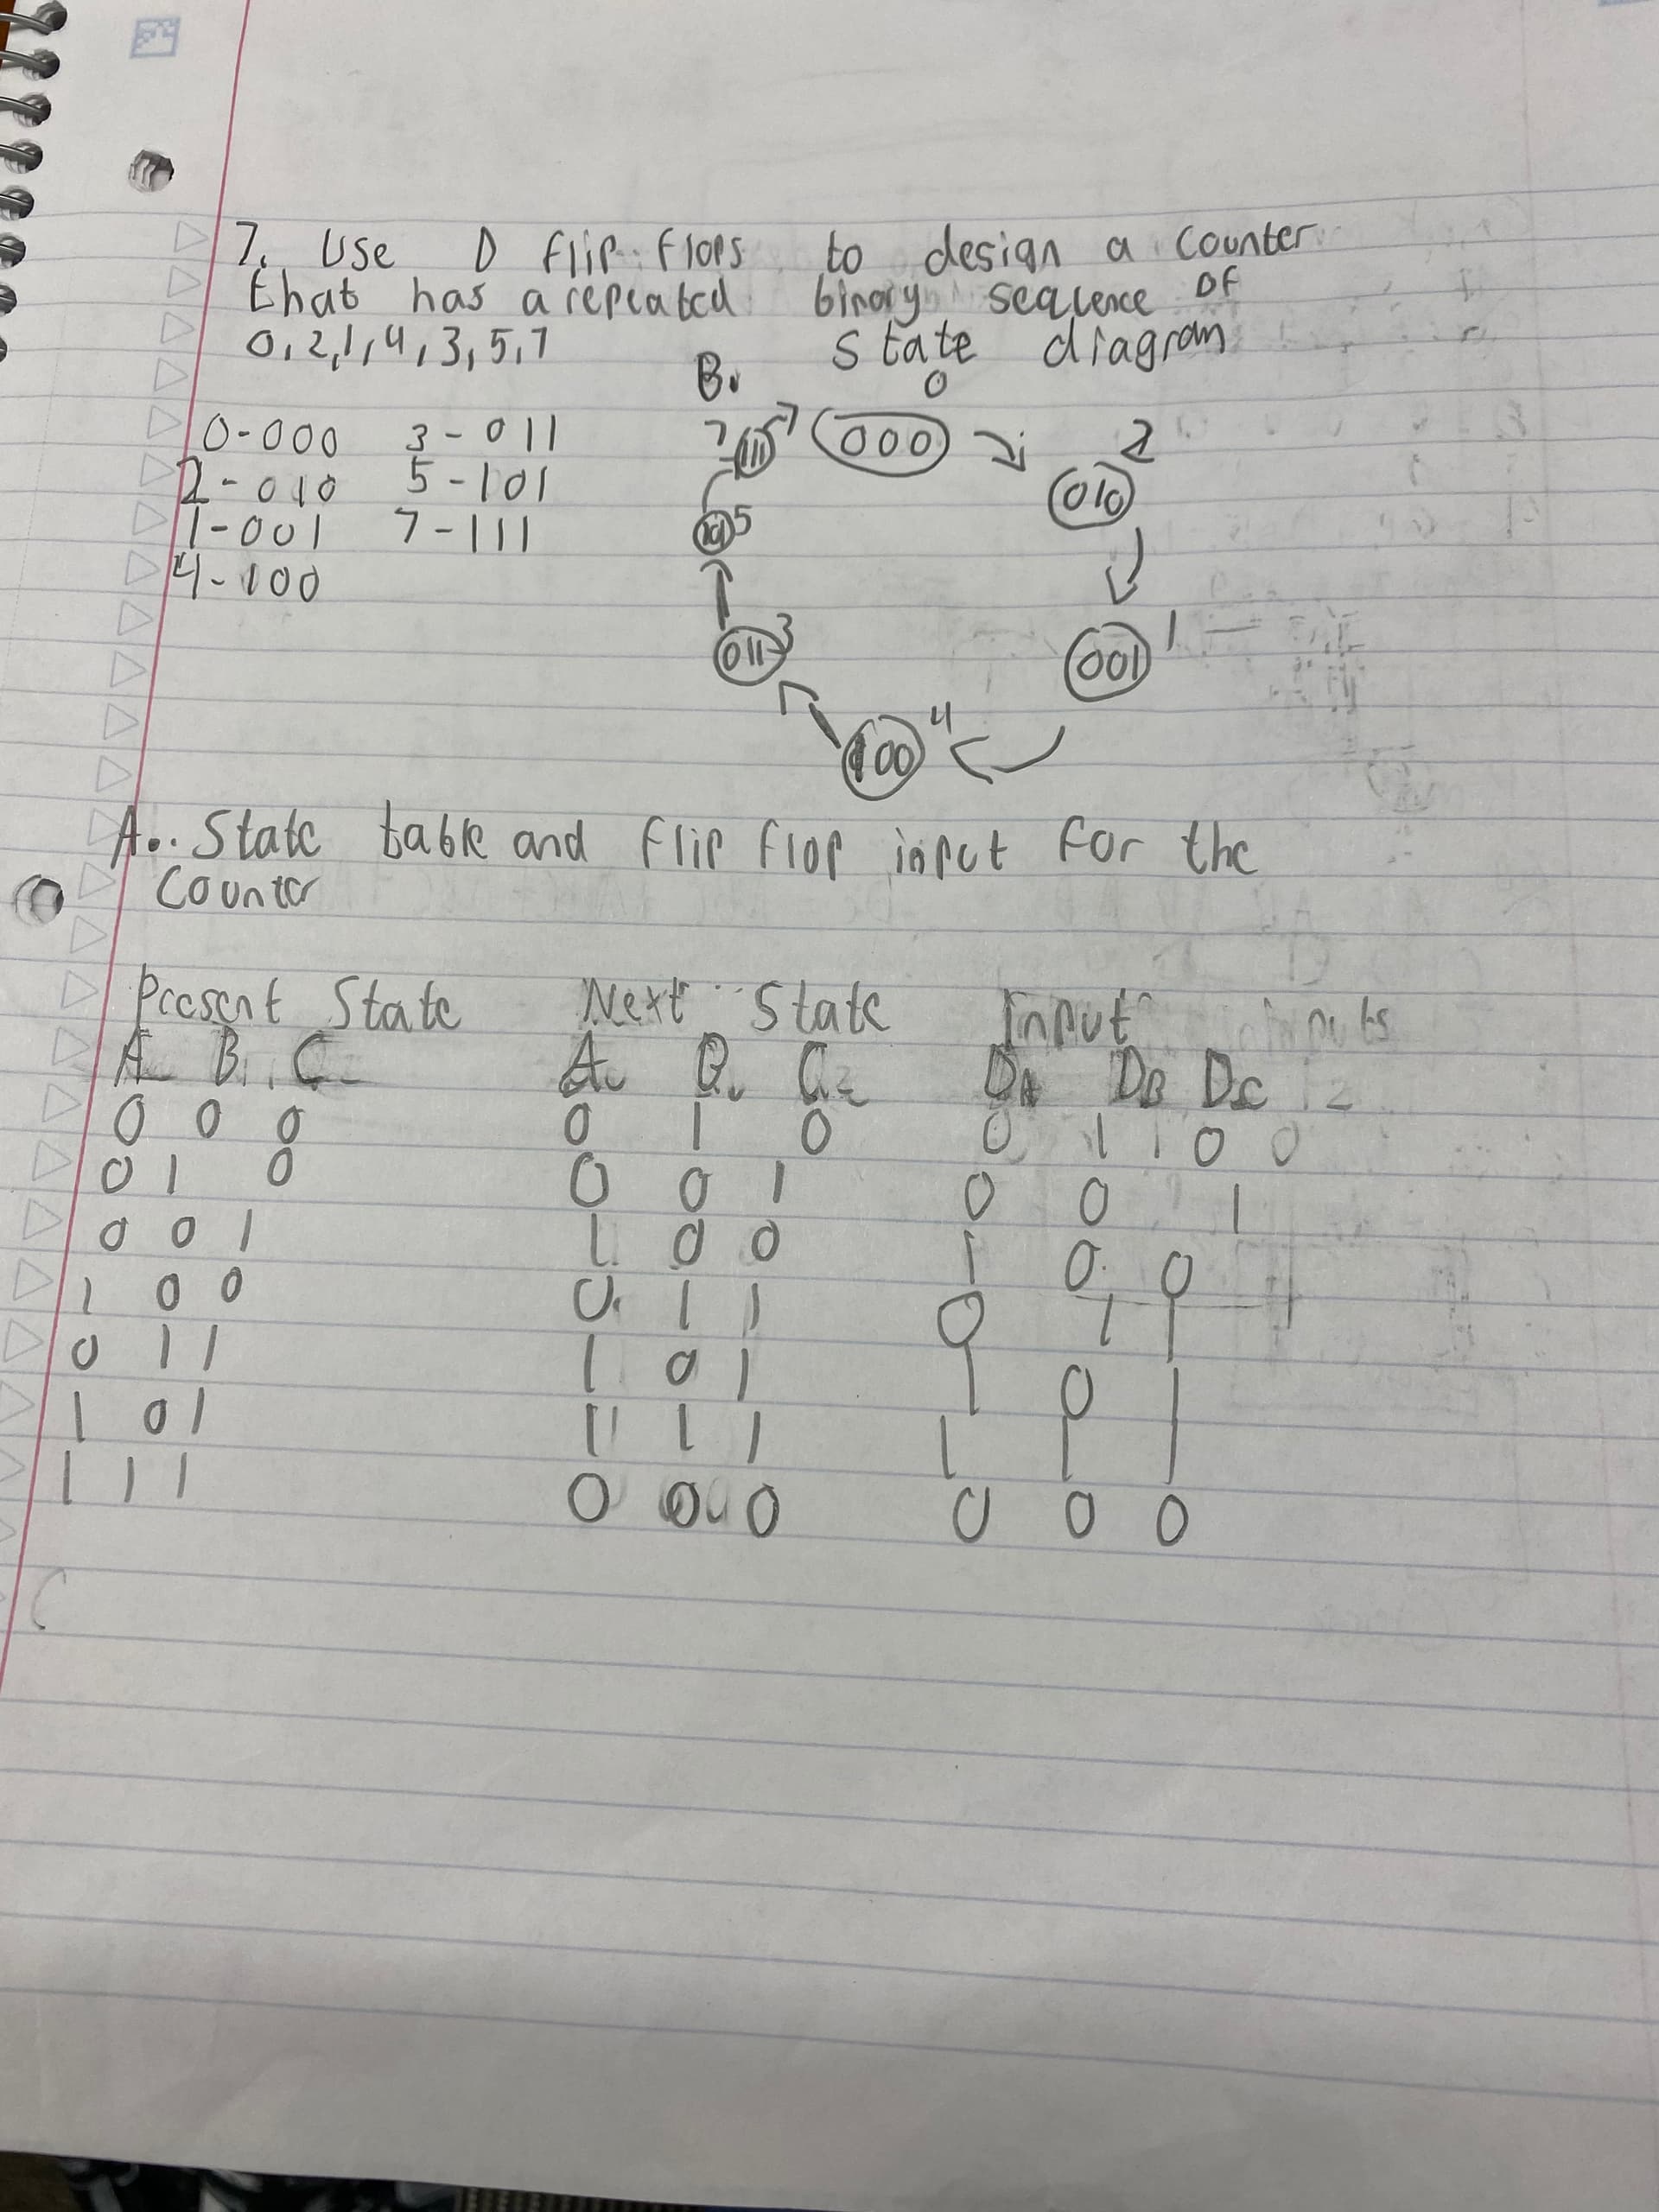 7. Use D flip flops to design a counter
that has a repeated binary sequence of
0,2,1,4,3,5,7
B. State diagram
0-000 3-011
2-010 5-101
1-001 7-111
4-100
0
000
2
010
1
001
4
100
3
011
5
101
7
111
A.. State table and flip flop input for the
counter
Present State Next State Input
A B C A B C DA DB DC
0 0 0 0 1 0 0 1 0
0 1 0 0 0 1 0 0 1
0 0 1 1 0 0 1 0 0
1 0 0 0 1 1 0 1 1
0 1 1 1 0 1 1 0 1
1 0 1 1 1 1 1 1 1
1 1 1 0 0 0 0 0 0